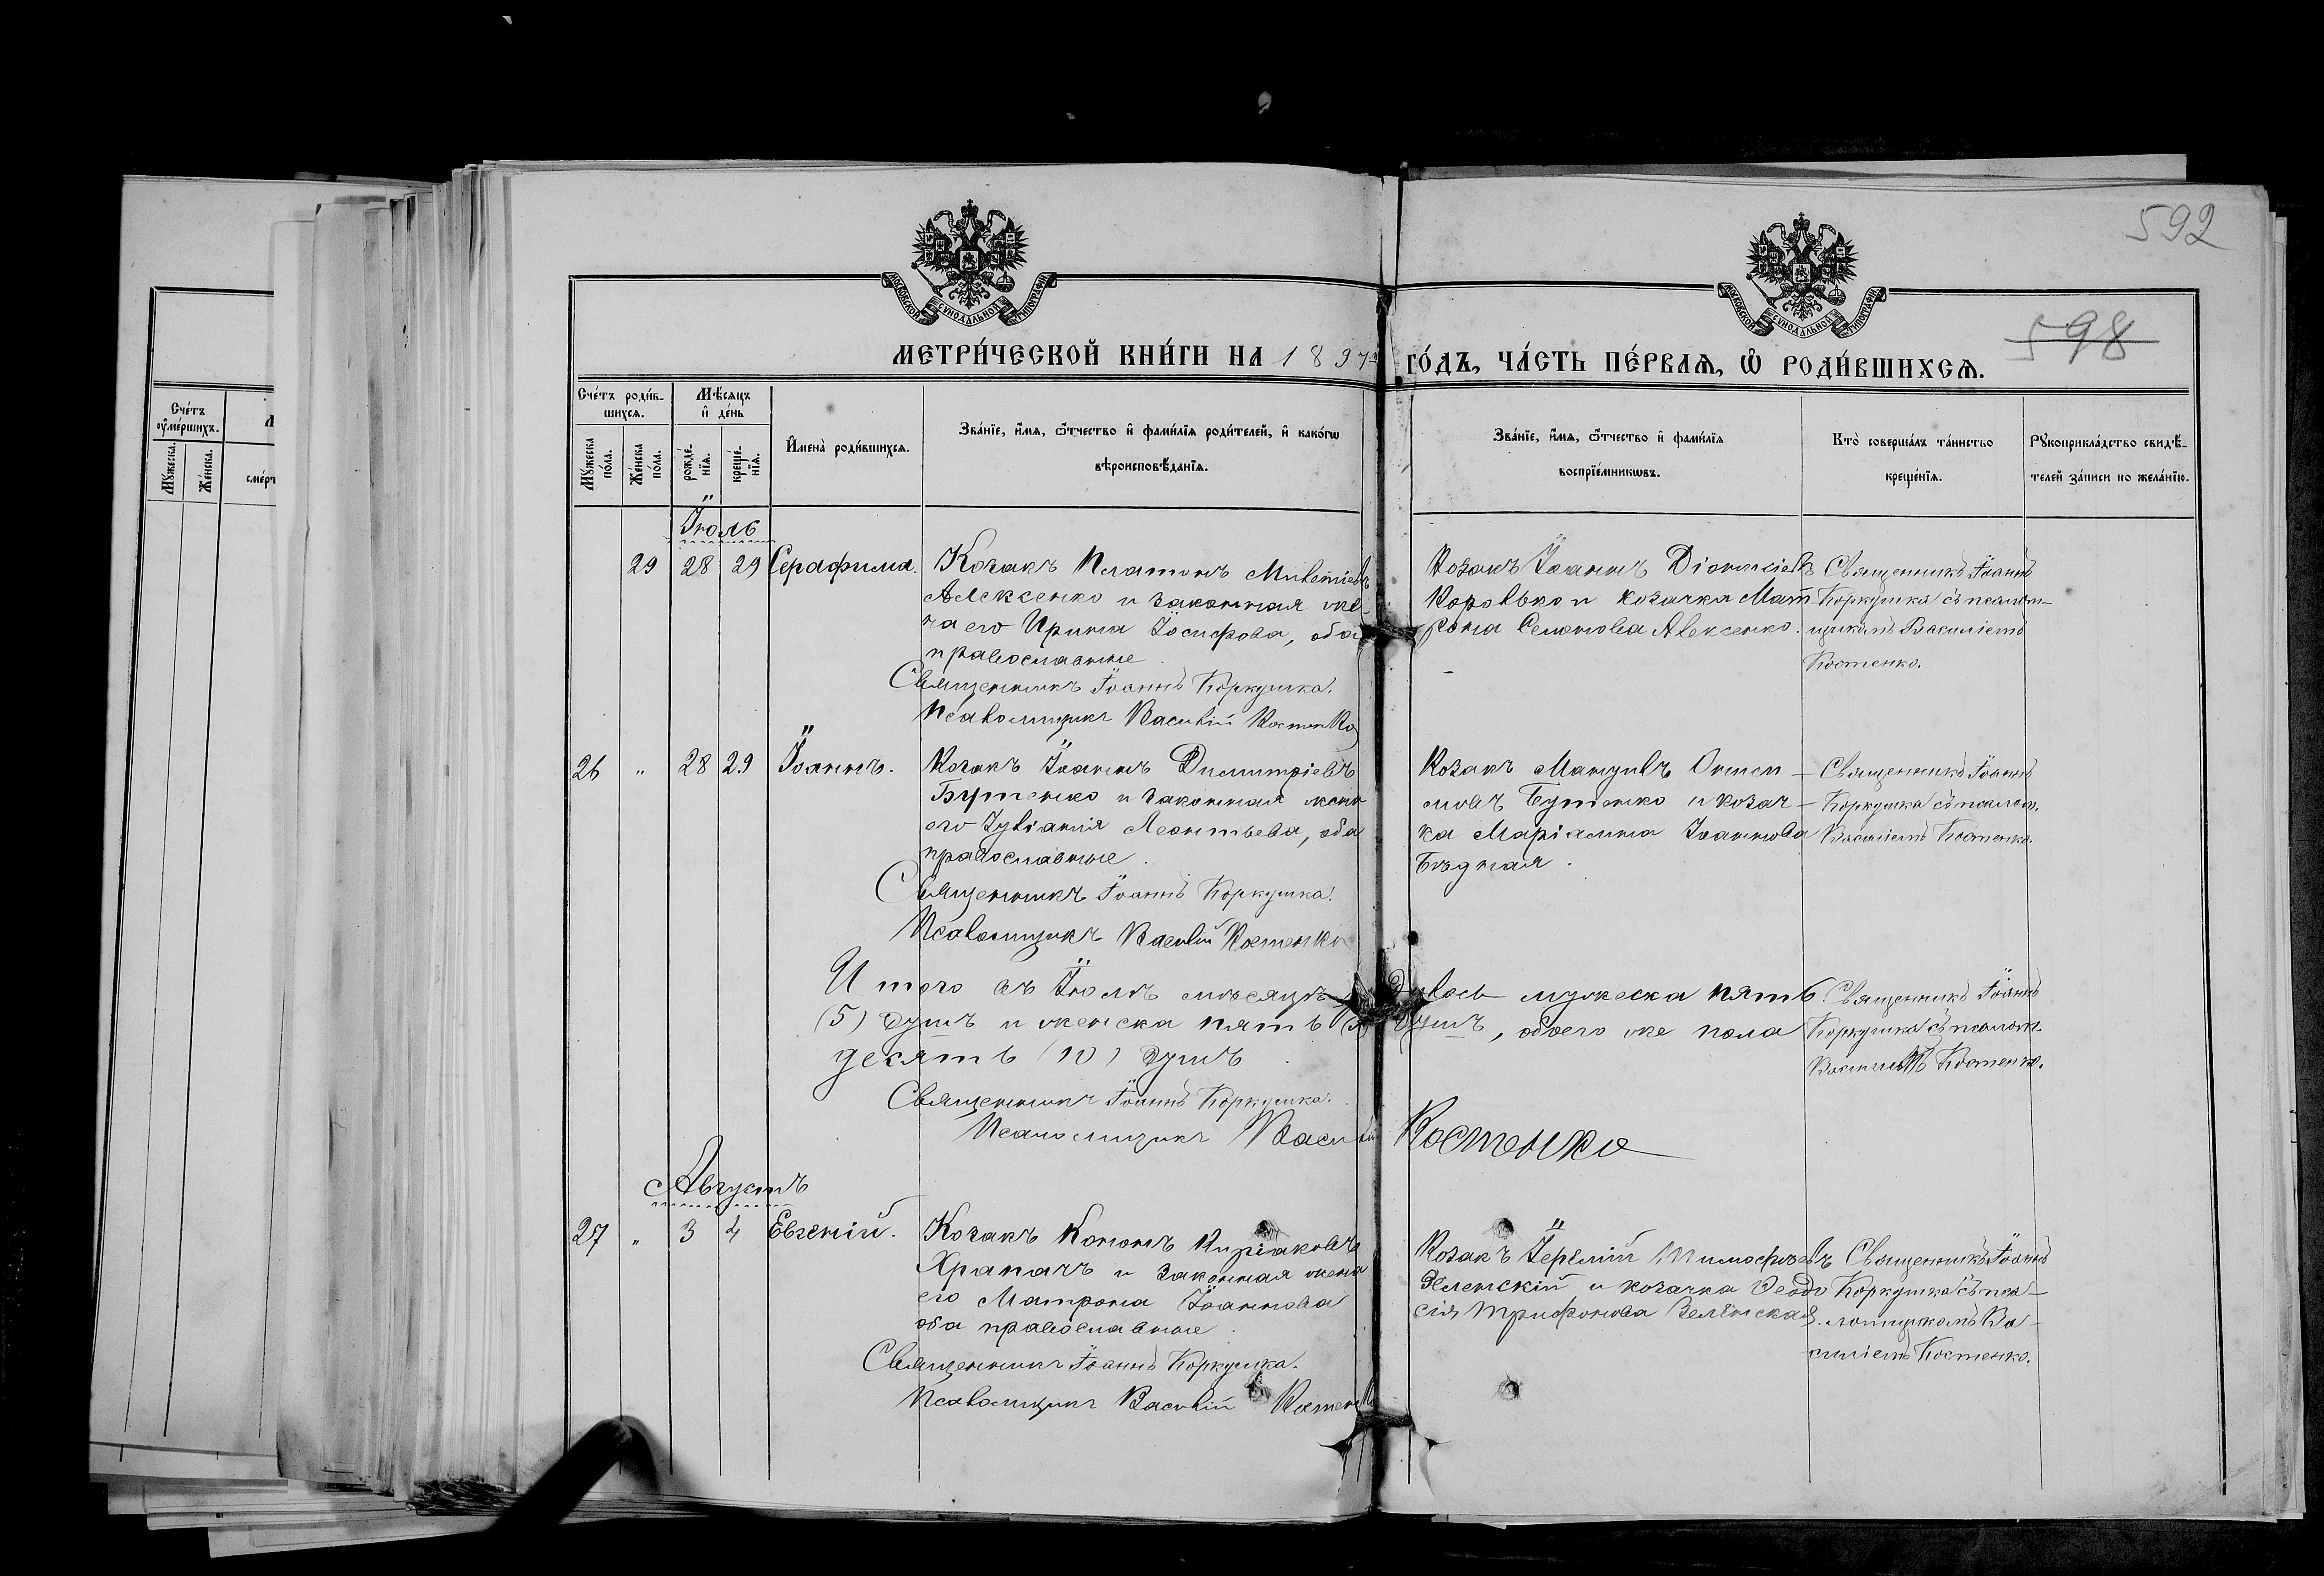 592
598
МОСКОВСКОЙ СУНОДАЛЬНОЙ ТИПОГРАФІИ
МОСКОВСКОЙ СУНОДАЛЬНОЙ ТИПОГРАФІИ
МЕТРИ́ЧЕСКОЙ КНИ́ГИ НА 1897 ГО́ДЪ, ЧА́СТЬ ПЕ́РВАЯ, Ѡ҆ РОДИ́ВШИХСЯ.
Сче́тъ
ѹ҆ме́ршихъ.
Мꙋ́жеска.
Же́нска.
сме́рт
Сче́тъ роди́в-
шихся.
Мꙋ́жеска по́ла.
Же́нска по́ла.
Мѣ́сяцъ
и҆ де́нь
рожде́-
нїя.
креще́-
нїя.
И҆мена̀ роди́вшихся.
Зва́нїе, и҆́мя, ѻ҆́тчество и҆ фами́лїя роди́телей, и҆ како́гѡ
вѣроисповѣ́данїя.
Зва́нїе, и҆́мя, ѻ҆́тчество и҆ фами́лїя
воспрїе́мникѡвъ.
Кто̀ соверша́лъ та́инство
креще́нїя.
Рꙋкоприкла́дство свидѣ́-
телей за́писи по жела́нїю.
Іюль
29 28 29 Серафима.
Козакъ Платонъ
Алексенко и законная же-
на его Ирина Іосифова, оба
православные
Священникъ Іоаннъ Коркушка.
Псаломщикъ Василій Костенко
Козакъ Іоаннъ Діонисіевъ
Королько и козачка Мат-
рона Семенова Алексенко.
Священникъ Іоаннъ
Коркушка съ псалом-
щикомъ Василіемъ
Костенко.
26 " 28 29 Іоаннъ.
Козакъ Іоаннъ Димитріевъ
Бутенко и законная жена
его Іуліанія Леонтьева, оба
православные.
Священникъ Іоаннъ Коркушка.
Псаломщикъ Василій Костенко
Козакъ Мануилъ Ониси-
мовъ Бутенко и козач-
ка Маріамна Іоаннова
Бѣдная.
Священникъ Іоаннъ
Коркушка съ псалом.
Василіемъ Костенко.
Итого въ Іюлѣ мѣсяцѣ родилось мужеска пять
(5) душъ и женска пять (5) душъ, обоего же пола
десять (10) душъ.
Священникъ Іоаннъ Коркушка.
Псаломщикъ Василій Костенко
Священникъ Іоаннъ
Коркушка съ псалом.
Василіемъ Костенко.
Августъ
27 " 3 4 Евгеній.
Козакъ Кононъ Киріаковъ
Храпачъ и законная жена
его Матрона Іоаннова
оба православные.
Священникъ Іоаннъ Коркушка.
Псаломщикъ Василій Костенко
Козакъ Іеремій Тимофѣевъ
Зеленскій и козачка Ѳеодо
сія Трифонова Зеленская.
Священникъ Іоаннъ
Коркушка съ пса-
ломщикомъ Ва-
силіемъ Костенко.